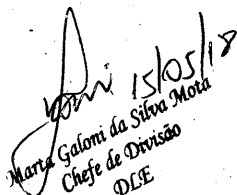 15/05/18
Marta Galoni da Silva Mota
Chefe de Divisão
DLE